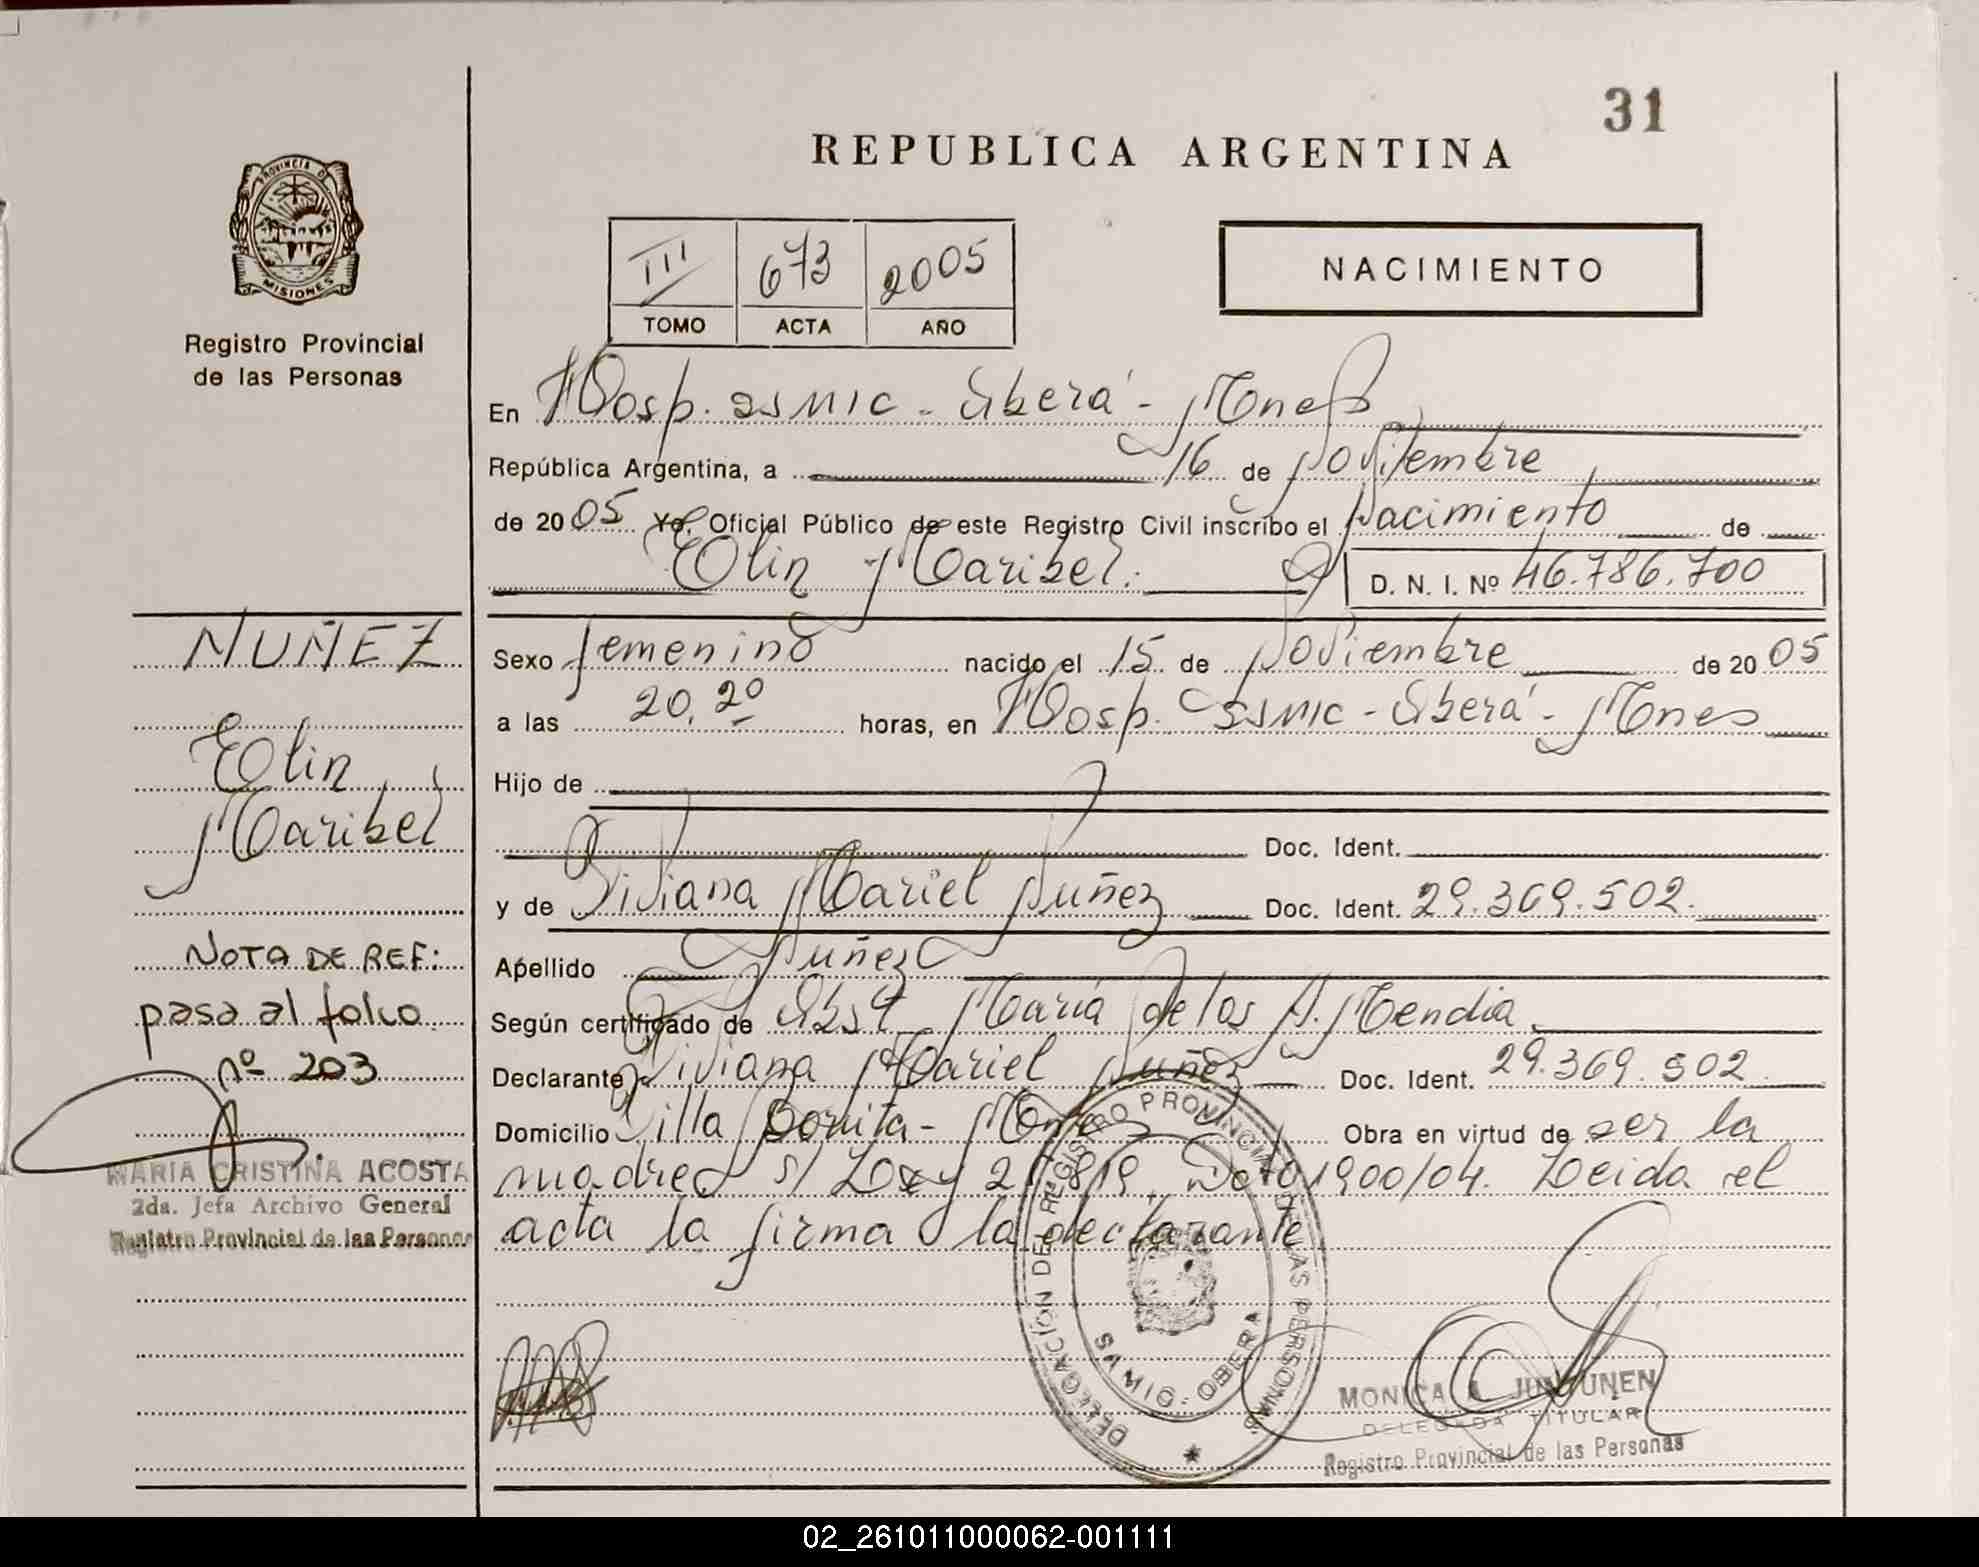 31
REPUBLICA ARGENTINA
PROVINCIA D
MISIONES
Registro Provincial
de las Personas
III 673 2005
TOMO ACTA AÑO
NACIMIENTO
En Hosp. SSMIC - Oberá - Mones
República Argentina, a 16 de Noviembre
de 2005 Yo, Oficial Público de este Registro Civil inscribo el Nacimiento de
Elin Maribel. D. N. I. Nº 46.786.700
Sexo femenino nacido el 15 de Noviembre de 2005
a las 20,20 horas, en Hosp. SSMIC - Oberá - Mones
Hijo de
Doc. Ident.
y de Viviana Mariel Nuñez Doc. Ident. 29.369.502.
Apellido Nuñez
Según certificado de Obst María de los A. Mendia
Declarante Viviana Mariel Nuñez Doc. Ident. 29.369.502
Domicilio Villa Bonita - Mones Obra en virtud de ser la
madre s/ Ley 2 819 Dcto 1900/04. Leida el
acta la firma la declarante
NUÑEZ
Elin
Maribel
NOTA DE REF:
pasa al folio
nº 203
MARIA CRISTINA ACOSTA
2da. Jefa Archivo General
Registro Provincial de las Personas
DELEGACIÓN DEL REGISTRO PROVINCIAL DE LAS PERSONAS
OBERA
MONICA A. JUNTUNEN
DELEGADA TITULAR
Registro Provincial de las Personas
02_261011000062-001111